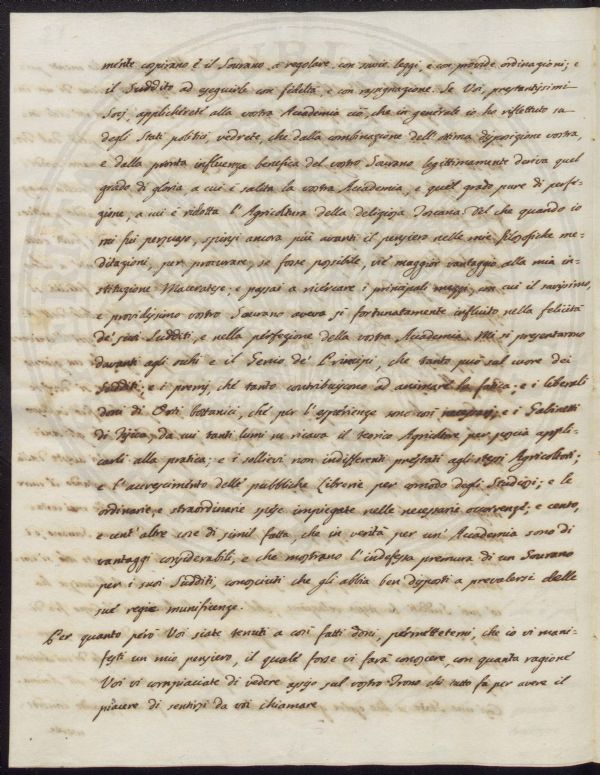 mente cospirano è il Sovrano a regolare con savie leggi, e con provide ordinazioni; e
il Suddito ad eseguirle con fedeltà, e con rassegnazione. Se Voi, prestantissimi
Socj, applicherete alla vostra Accademia ciò, che in generale io ho riflettuto su
degli Stati politici, vedrete, che dalla combinazione dell'ottima disposizione vostra,
e dalla pronta influenza benefica del vostro Sovrano legittimamente deriva quel
grado di gloria a cui è salita la vostra Accademia, e quel grado pure di perfe-
zione, a cui è ridotta l'Agricoltura della deliziosa Toscana. Del che quando io
mi fui persuaso, spinsi ancora più avanti il pensiero nelle mie filosofiche me-
ditazioni, per procurare, se fosse possibile, vie maggior vantaggio alla mia in-
stituzione Maceratese, e passai a ricercare i principali mezzi, con cui il savissimo,
e providissimo vostro Sovrano aveva sì fortunatamente influito nella felicità
de' suoi Sudditi, e nella perfezione della vostra Accademia. Mi si presentarono
davanti agli occhi e il Genio de' Principi, che tanto può sul cuore dei
Sudditi; e i premj, che tanto contribuiscono ad animare la fatica; e i liberali
doni di Orti bottanici, che per l'esperienze sono così necessarj; e i Gabinetti
di Fisica, da cui tanti lumi ne ricava il teorico Agricoltore per poscia appli-
carli alla pratica; e i sollievi non indifferenti prestati agli stessi Agricoltori;
e l'accrescimento delle pubbliche Librerie per comodo degli Studiosi; e le
ordinarie, e straordinarie spese impiegate nelle necessarie occorrenze; e cento,
e cent'altre cose di simil fatta, che in verità per un'Accademia sono di
vantaggi considerabili, e che mostrano l'indefessa premura di un Sovrano
per i suoi Sudditi, conosciuti che gli abbia ben disposti a prevalersi delle
sue regie munificenze.
Per quanto però Voi siate tenuti a così fatti doni, permettetemi, che io vi mani-
festi un mio pensiero, il quale forse vi farà conoscere, con quanta ragione
Voi vi compiaciate di vedere assiso sul vostro Trono chi tutto fa per avere il
piacere di sentirsi da voi chiamare